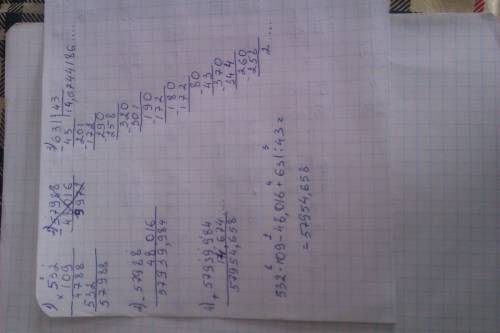 1) × 532
109
4788
532
57988
2) 57988
48016
9972
3) 631 | 43
43 | 14,6744186....
201
-172
290
258
-320
301
190
-172
180
-172
-80
43
-370
344
260
-258
2 ....
2) - 57988
48,016
57939,984
4) + 57939,984
14,674
57954,658
532 · 109 - 48,016 + 631 : 43 =
= 57954,658